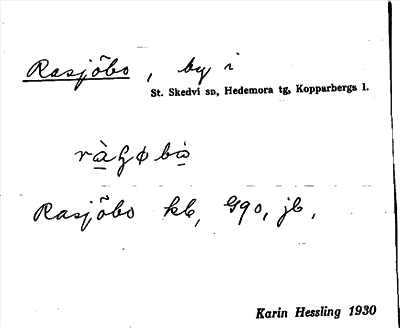 Rasjöbo, by i
St. Skedvi sn, Hedemora tg, Kopparbergs l.
Rasjöbo kb, G90, jb,
Karin Hessling 1930